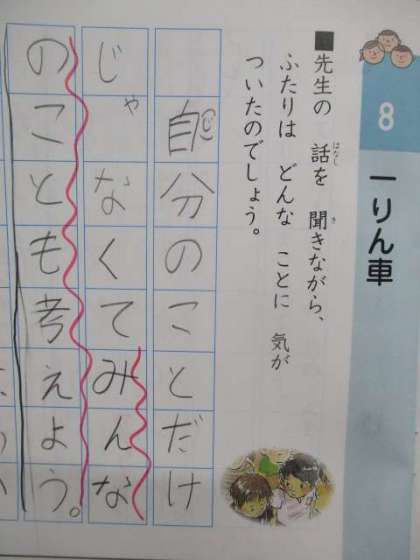 8
一りん車
先生の 話を 聞きながら、
はなし
き
ふたりは どんな ことに 気が
ついたのでしょう。
自分のことだけ
じ
じゃなくてみんな
のことも考えよう。